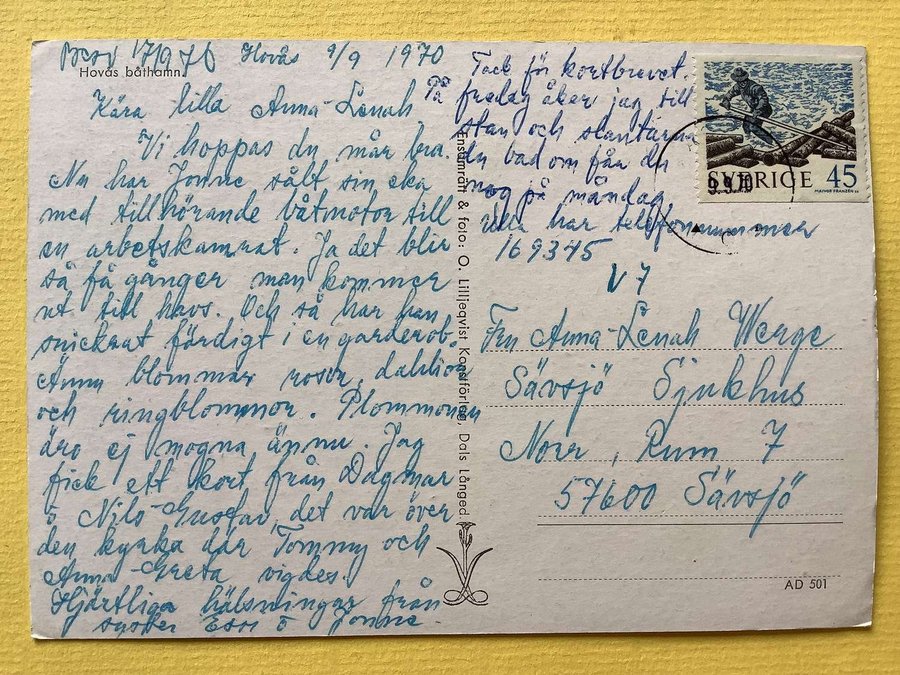 Besv 17/9 70 Hovås 9/9 1970
Hovås båthamn
Kära lilla Anna-Lenah,
Vi hoppas du mår bra.
Nu har Jonne sålt sin eka
med tillhörande båtmotor till
en arbetskamrat. Ja det blir
så få gånger man kommer
ut till havs. Och så har han
snickrat färdigt i en garderob.
Ännu blommar rosor, dahlior
och ringblommor. Plommonen
äro ej mogna ännu. Jag
fick ett kort från Dagmar
o Nils-Gustaf, det var över
den kyrka där Tommy och
Anna-Greta vigdes.
Hjärtliga hälsningar från
syster o Jonne
Tack för kortbrevet.
På fredag åker jag till
stan och
du bad om får du
nog på måndag
Ulla har telefonnummer
169345
V 7
Fru Anna-Lenah Werge
Sävsjö Sjukhus
Norr, Rum 7
57600 Sävsjö
Ensamrätt & foto: O. Lilljeqvist Konstförlag, Dals Långed
SVERIGE 45
MAJVOR FRANZÉN SC
9.9.70
AD 501